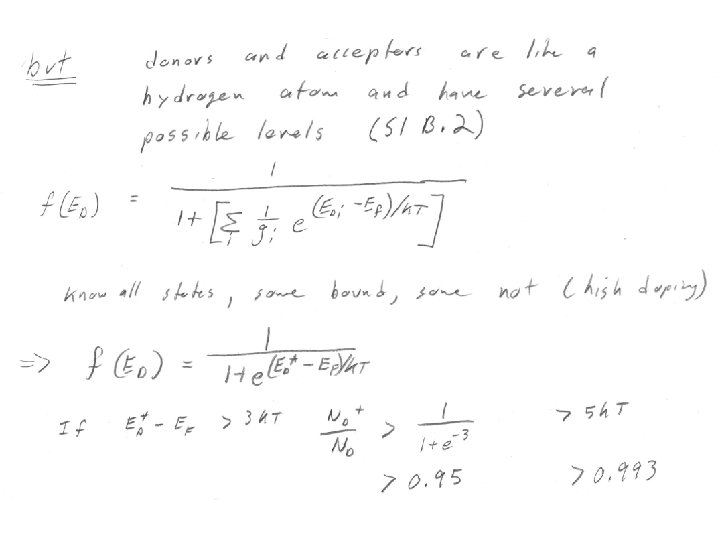 but donors and accepters are like a
hydrogen atom and have several
possible levels (S1 B.2)
f(E_D) = 1 / (1 + [Σ_i 1/g_i e^{(E_Di - E_f)/kT}])
Know all states, some bound, some not (high doping)
=> f(E_D) = 1 / (1 + e^{(E_D* - E_F)/kT})
If E_D* - E_F > 3kT N_D^+ / N_D > 1 / (1 + e^{-3}) > 5kT
> 0.95 > 0.993